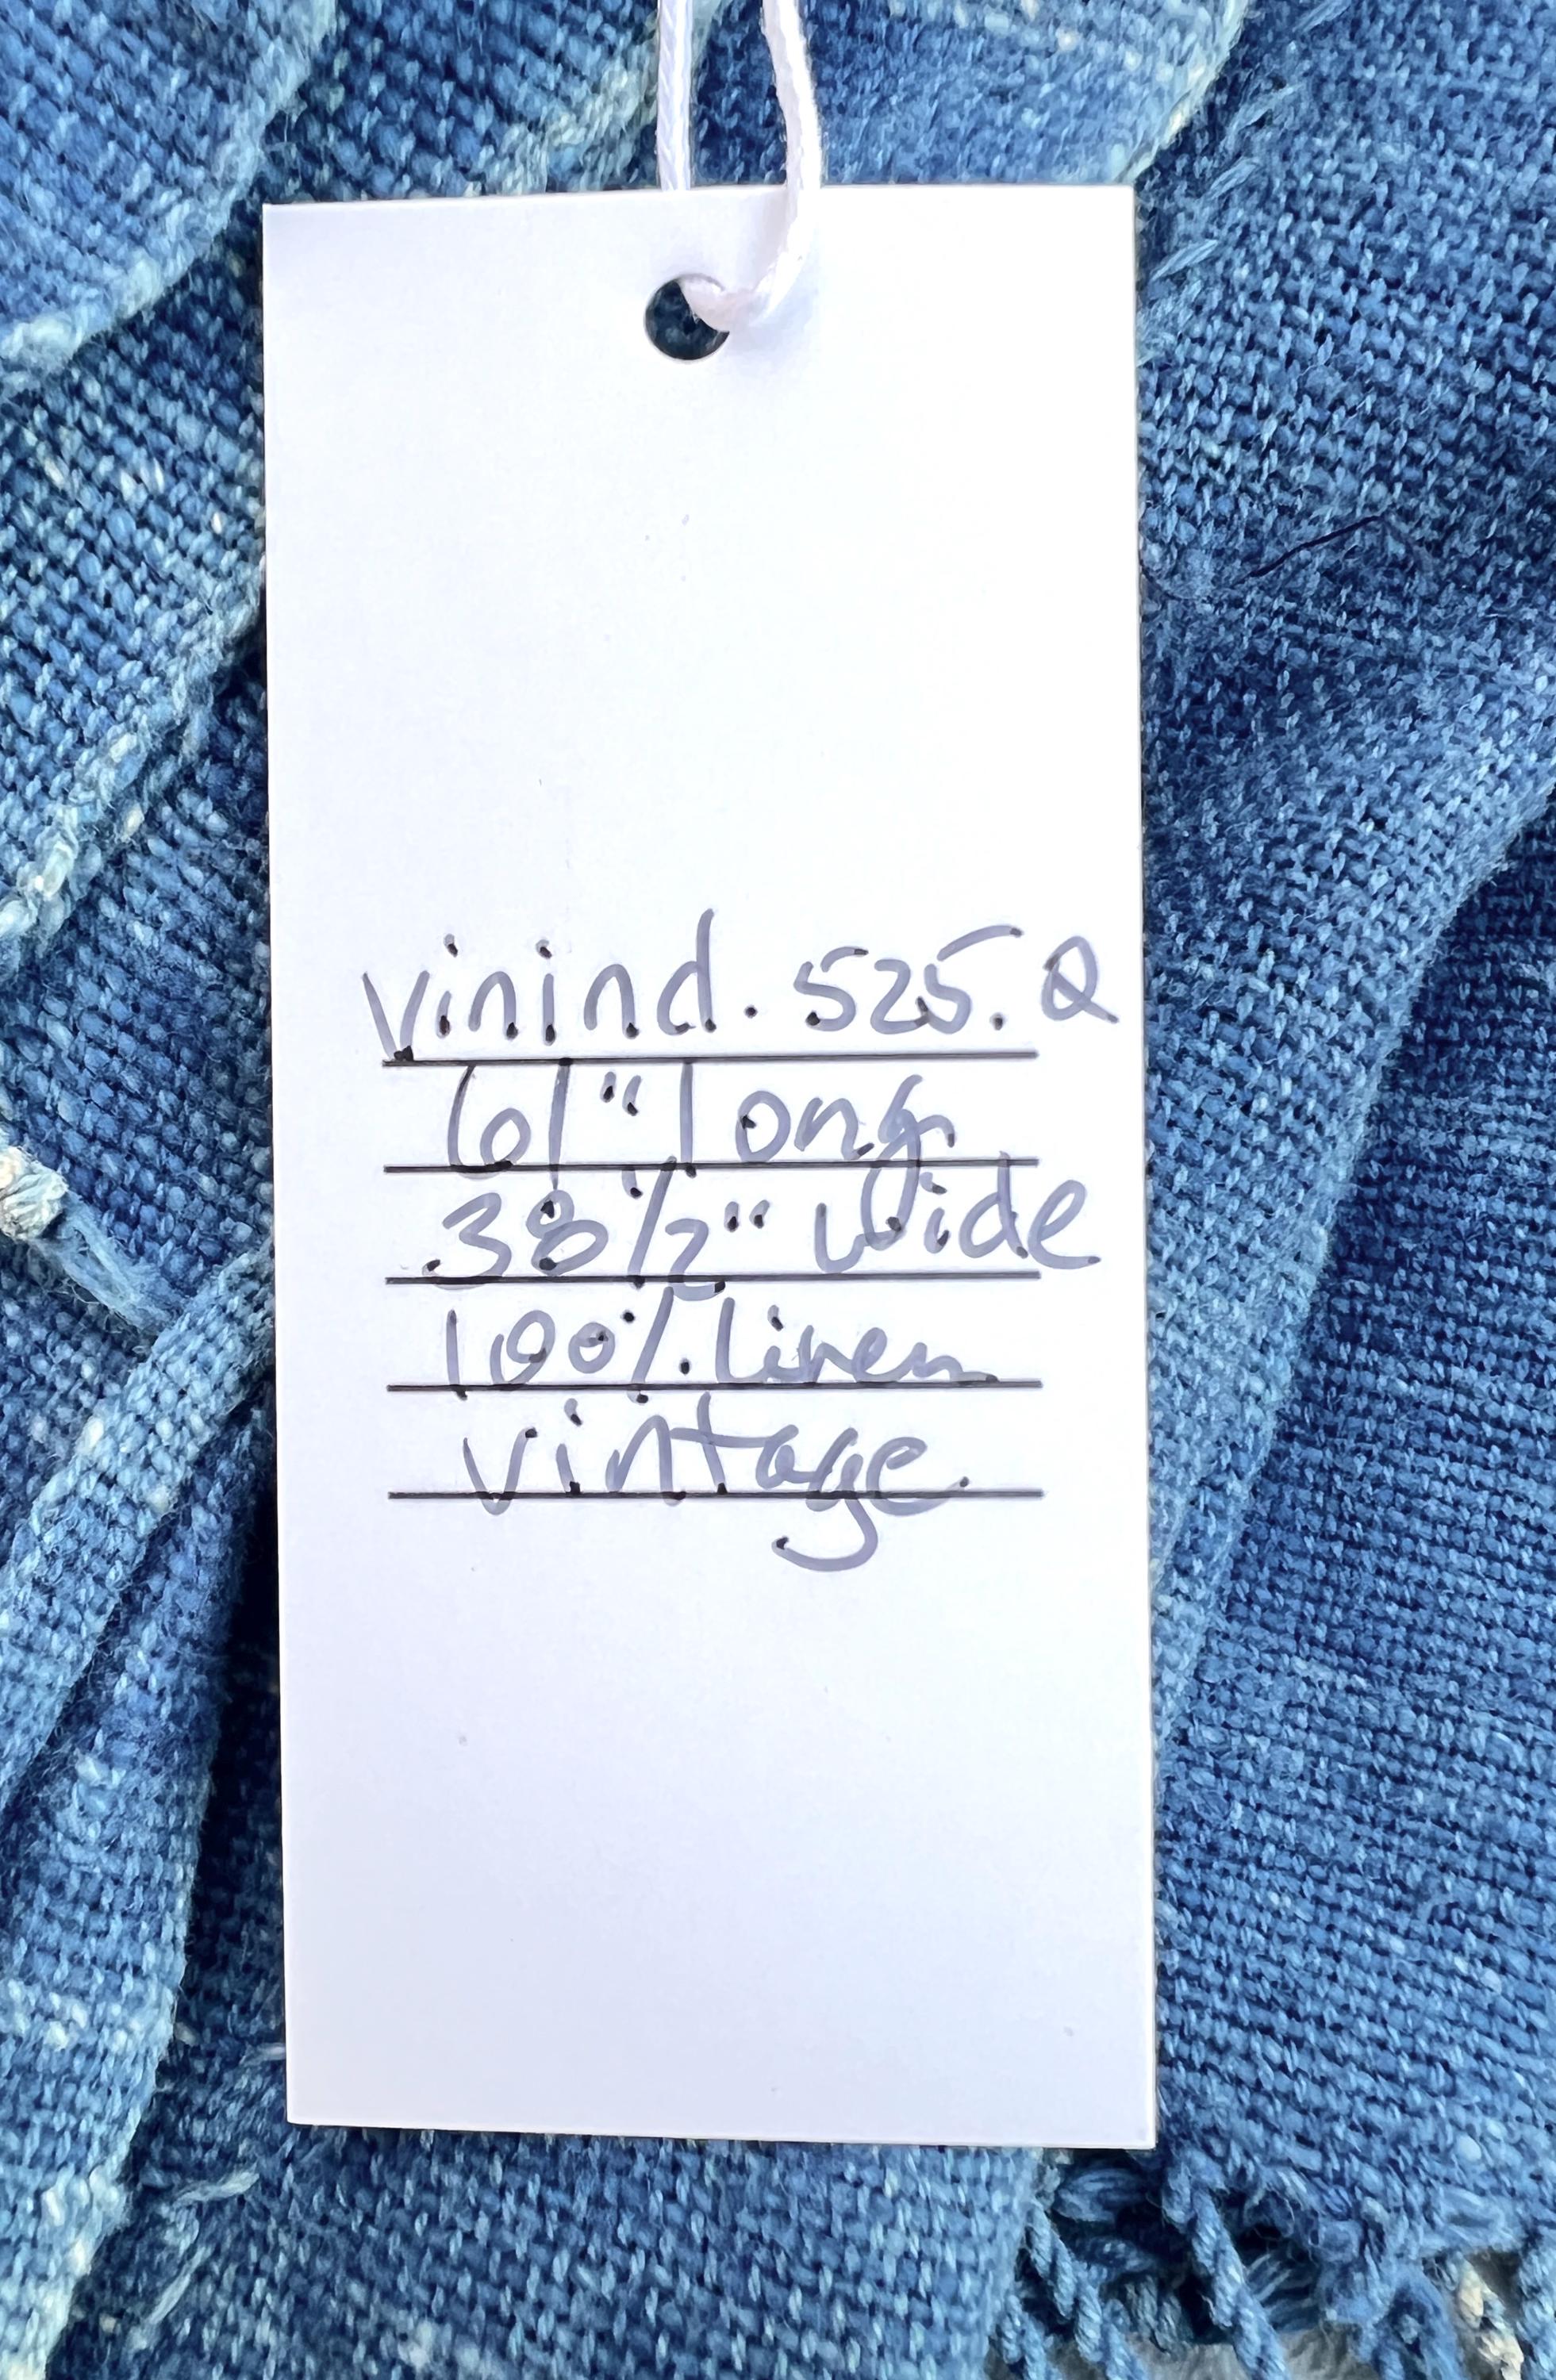 vinind. 525. Q
61" long
38 1/2" wide
100% linen
vintage